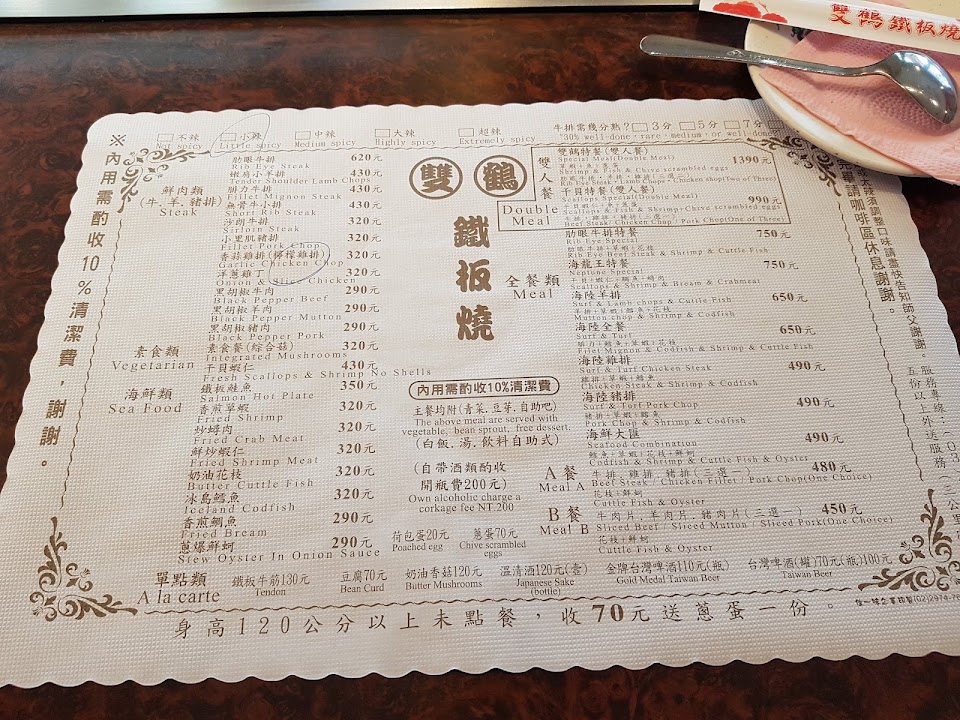 雙鶴鐵板燒
不辣 小辣 中辣 大辣 超辣
Not spicy Little spicy Medium spicy Highly spicy Extremely spicy
牛排需幾分熟？ 3分 5分 7分
"30% well-done, rare, medium, or well done"
※內用需酌收10%清潔費，謝謝。
雙鶴
鐵板燒
鮮肉類
(牛.羊.豬排)
Steak
肋眼牛排 620元
Rib Eye Steak
嫩肩小羊排 430元
Tender Shoulder Lamb Chops
腓力牛排 430元
Fillet Mignon Steak
無骨牛小排 430元
Short Rib Steak
沙朗牛排 320元
Sirloin Steak
小里肌豬排 320元
Fillet Pork Chop
香蒜雞排(檸檬雞排) 320元
Garlic Chicken Chop
洋蔥雞丁 320元
Onion & Slice Chicken
黑胡椒牛肉 290元
Black Pepper Beef
黑胡椒羊肉 290元
Black Pepper Mutton
黑胡椒豬肉 290元
Black Pepper Pork
素食類
Vegetarian
素食餐(綜合菇) 320元
Integrated Mushrooms
海鮮類
Sea Food
干貝蝦仁 430元
Fresh Scallops & Shrimp No Shells
鐵板鮭魚 350元
Salmon Hot Plate
香煎草蝦 320元
Fried Shrimp
炒蟳肉 320元
Fried Crab Meat
鮮炒蝦仁 320元
Fried Shrimp Meat
奶油花枝 320元
Butter Cuttle Fish
冰島鱈魚 320元
Iceland Codfish
香煎鯛魚 290元
Fried Bream
蔥爆鮮蚵 290元
Stew Oyster In Onion Sauce
內用需酌收10%清潔費
主餐均附(青菜.豆芽.自助吧)
The above meal are served with
vegetable, bean sprout, free dessert.
(白飯.湯.飲料自助式)
(自帶酒類酌收
開瓶費200元)
Own alcoholic charge a
corkage fee NT.200
荷包蛋20元 蔥蛋70元
Poached egg Chive scrambled eggs
雙人餐
Double Meal
雙鶴特餐(雙人餐) 1390元
Special Meal(Double Meal)
Shrimp & Fish & Chive scrambled eggs
Rib Eye Steak / Lamb Chops + Chicken chop(Two of Three)
干貝特餐(雙人餐) 990元
Scallops Special(Double Meal)
Scallops & Fish & Shrimp+Chive scrambled eggs
牛排、雞排、豬排(三選一)
Beef Steak / Chicken Chop / Pork Chop(One of Three)
全餐類
Meal
肋眼牛排特餐 750元
Rib Eye Special
肋眼牛排+草蝦+花枝
Rib Eye Beef Steak & Shrimp & Cuttle Fish
海龍王特餐 750元
Neptune Special
Scallops & Shrimp & Bream & Crabmeat
海陸羊排 650元
Surf & Lamb chops & Cuttle Fish
羊排+草蝦+花枝
Mutton chop & Shrimp & Codfish
海陸全餐 650元
Surf & Turf
腓力+鱈魚+草蝦+花枝
Filet Mignon & Codfish & Shrimp & Cuttle Fish
海陸雞排 490元
Surf & Turf Chicken Steak
雞排+草蝦+鱈魚
Chicken Steak & Shrimp & Codfish
海陸豬排 490元
Surf & Turf Pork Chop
豬排+草蝦+鱈魚
Pork Chop & Shrimp & Codfish
海鮮大匯 490元
Seafood Combination
鱈魚+草蝦+花枝+鮮蚵
Codfish & Shrimp & Cuttle Fish & Oyster
A餐
Meal A
牛排、雞排、豬排(三選一) 480元
Beef Steak / Chicken Fillet / Pork Chop(One Choice)
花枝+鮮蚵
Cuttle Fish & Oyster
B餐
Meal B
牛肉片、羊肉片、豬肉片(三選一) 450元
Sliced Beef / Sliced Mutton / Sliced Pork(One Choice)
花枝+鮮蚵
Cuttle Fish & Oyster
單點類
A la carte
鐵板牛筋130元 豆腐70元 奶油香菇120元 溫清酒120元(壺) 金牌台灣啤酒110元(瓶) 台灣啤酒(罐)70元(瓶)100元
Tendon Bean Curd Butter Mushrooms Japanese Sake (bottle) Gold Medal Taiwan Beer Taiwan Beer
身高120公分以上未點餐，收70元送蔥蛋一份。
須調整口味請盡快告知師父謝謝
畢請咖啡區休息謝謝。
五份以上外送服務